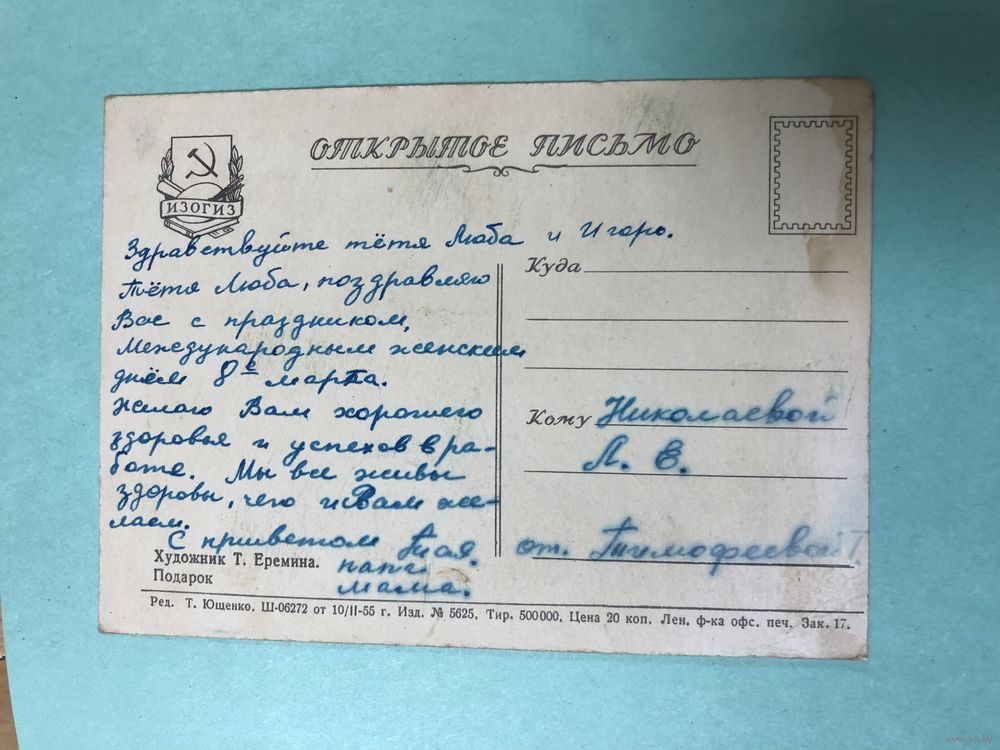 ОТКРЫТОЕ ПИСЬМО
ИЗОГИЗ
Здравствуйте тётя Люба и Игорь.
Тётя Люба, поздравляю
Вас с праздником,
Международным женским
днём 8е марта.
Желаю Вам хорошего
здоровья и успехов в ра-
боте. Мы все живы
здоровы, чего и Вам же-
лаем.
С приветом Тая.
папа
мама.
Куда
Кому Николаевой
Л. Е.
от. Тимофеевой Т
Художник Т. Еремина.
Подарок
Ред. Т. Ющенко. Ш-06272 от 10/II-55 г. Изд. № 5625. Тир. 500000. Цена 20 коп. Лен. ф-ка офс. печ. Зак. 17.